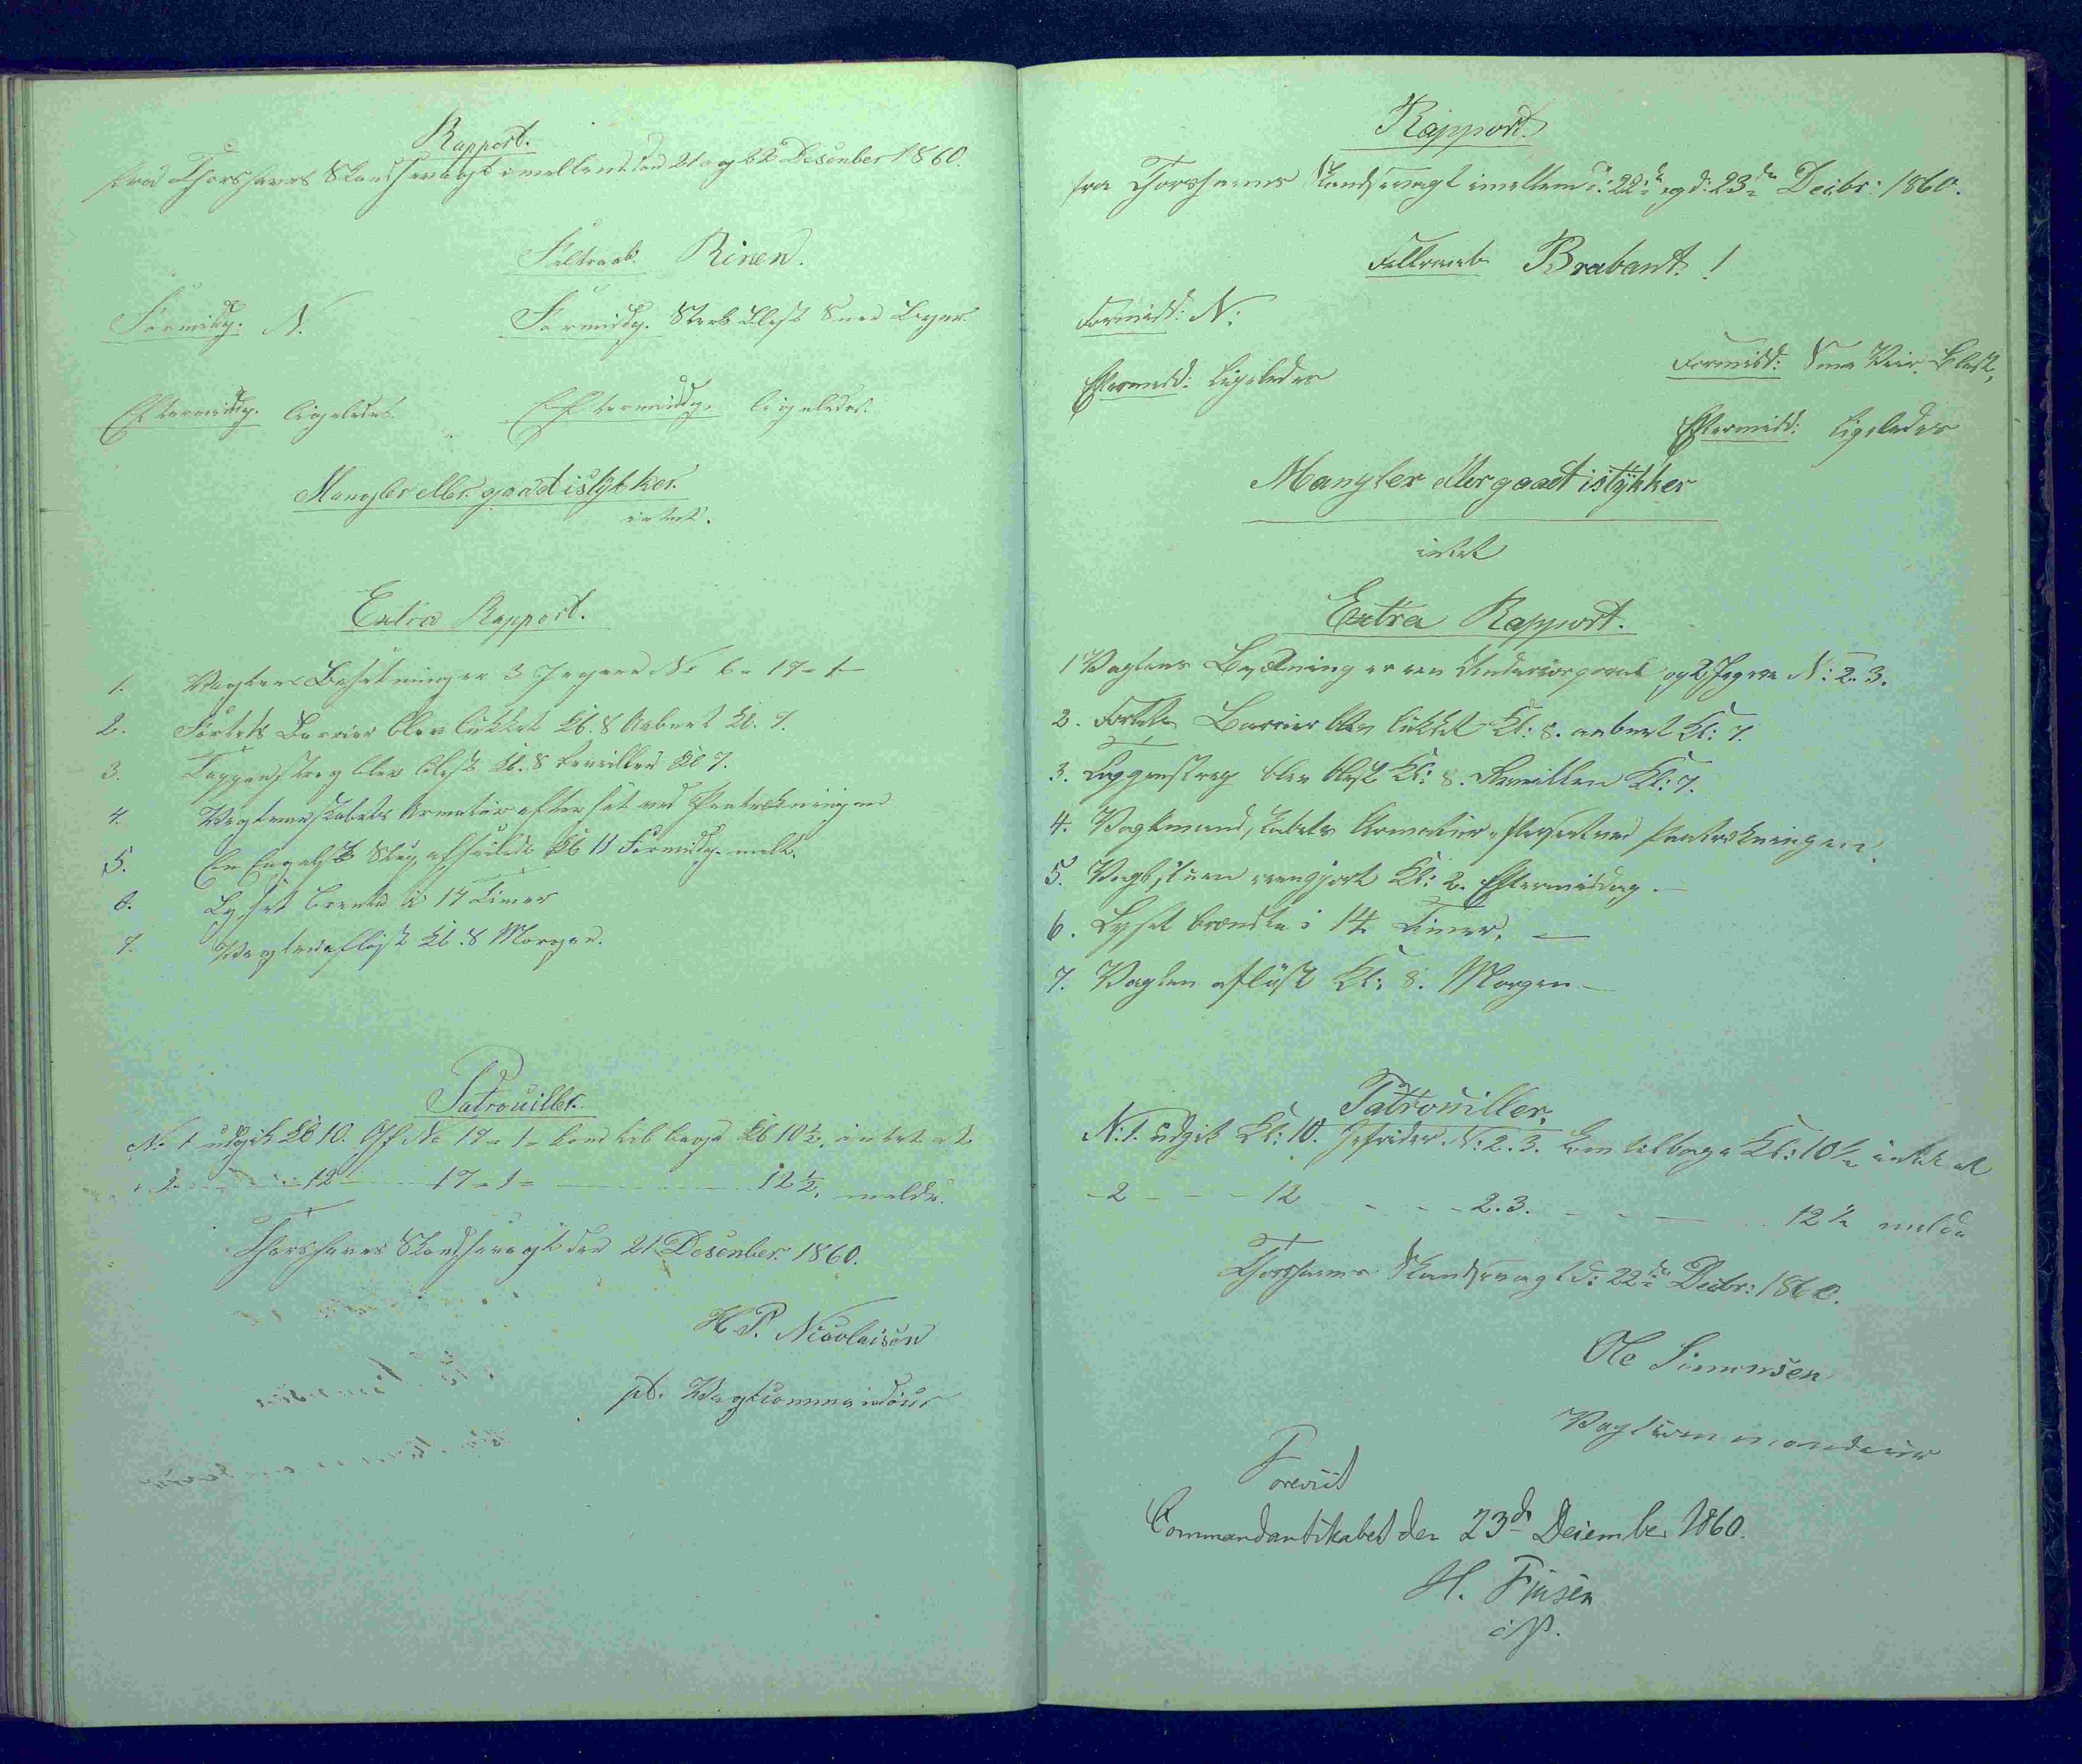 Rapport.
fra Thorshavns Skandsevagt imellem den 21 og 22 Desember 1860.
Feltraab. Rinen.
Formidg. N.
Formidg. Sterk Blest Snee Byger.
Eftermidg. ligeledes
Eftermiddg. ligeledes.
Mangler eller gaaet istÿkker.
intet.
Extra Rapport.
1. Vagtens Besetning er 3 Jegere No 6 - 17 - 1
2. Fortets Barrier blev lukket Kl. 8 Aabnet Kl. 7.
3. Tappenstreg blev blest Kl. 8 Reveillen Kl 7.
4. Vagtmandskabets Armatur efterset ved Paatrekningen
5. En Engelsk Slup afseilede Kl 11 Formidg.
6. Lyset brente i 14 Timer
7. Vagten aflöst Kl. 8 Morgen.
Patrouiller.
No 1 udgik Kl 10. Gf No 17 - 1 - kom tilbage Kl 10½, intet at
" 2 - - - 12 - - 17 - 1 - - - - 12½, melde.
Thorshavns Skandsevagt den 21 Desember 1860.
H. P. Nicolaisen
pt. Vagtcommandöur
Rapport.
fra Thorshavns Skandsevagt imellem d: 22de og d: 23de Decbr: 1860.
Feltraab Brabant!
Formidd: N:
Eftermidd: Ligeledes
Formidd: Snee Veir, Blest,
Eftermidd: Ligeledes
Mangler eller gaaet istÿkker
intet
Extra Rapport.
1 Vagtens Besetning er een Undercorporal og 2 Jegere N: 2. 3.
2. Fortets Barrier blev lukket Kl: 8. aabnet Kl: 7.
3. Tappenstreg blev blest Kl: 8. Reveillen Kl: 7.
4. Vagtmandskabets Armatur efterseet ved Paatrekningen.
5. Vagtstuen reengjort Kl: 2. Eftermiddag.
6. Lyset brendte i 14 Timer.
7. Vagten aflöst Kl: 8. Morgen
Patrouiller.
N: 1. udgik Kl: 10. Gefrider. N: 2. 3. kom tilbage Kl: 10½ intet at
- 2 - - - 12 - - - - 2. 3. - - - - 12½ melde
Thorshavns Skandsevagt d: 22de Decbr: 1860.
Ole Simonsen
Vagtcommandeur
Foreviist
Commandantskabet den 23de December 1860.
H. Finsen